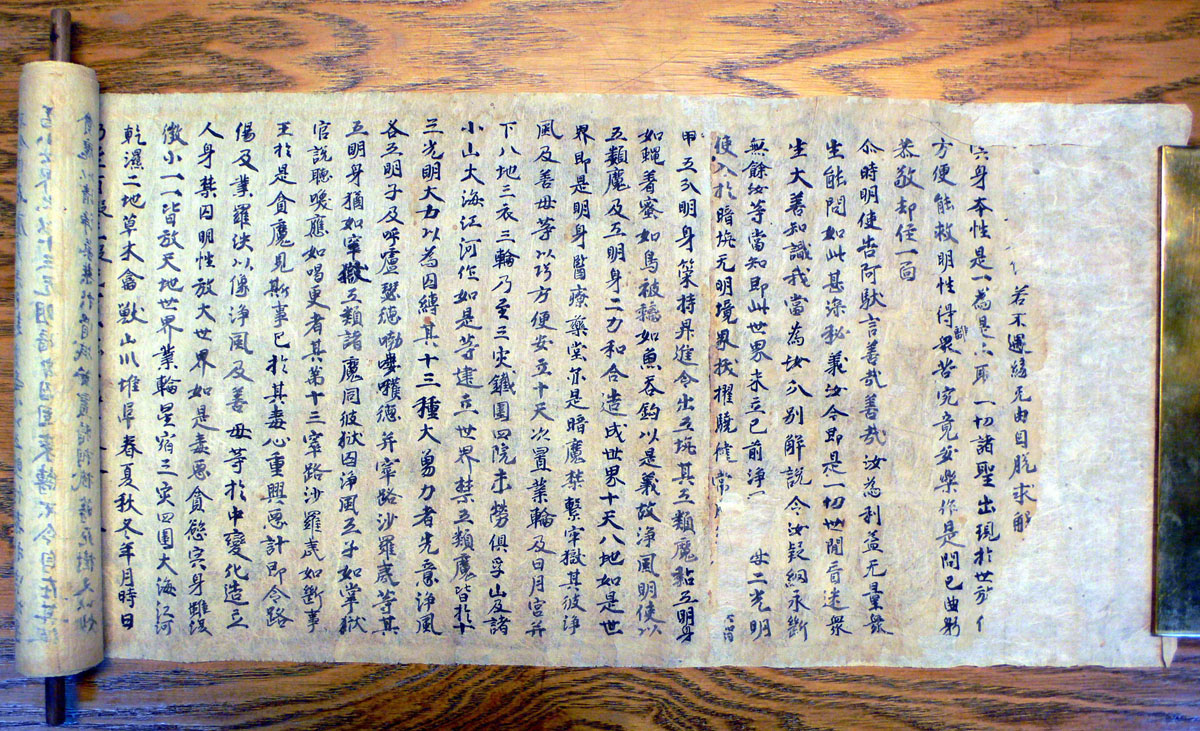 若不遇緣无由自脫求解
宍身本性是一為是二耶一切諸聖出現於世
方便能救明性得離眾苦究竟安樂作是問已曲躬
恭敬却住一面
尒時明使告阿馱言善哉善哉汝為利益无量眾
生能問如此甚深秘義汝今即是一切世間盲迷眾
生大善知識我當為汝分別解說令汝疑網永斷
無餘汝等當知即此世界未立已前淨 母二光明
使入於暗坑无明境界拔擢驍健常
甲五分明身策持昇進令出五坑其五類魔黏五明身
如蠅著蜜如鳥被黐如魚吞鉤以是義故淨風明使以
五類魔及五明身二力和合造成世界十天八地如是世
界即是明身醫療藥堂亦是暗魔禁繫牢獄其彼淨
風及善母等以巧方便安立十天次置業輪及日月宮并
下八地三衣三輪乃至三灾鐵圍四院未勞俱孚山及諸
小山大海江河作如是等建立世界禁五類魔皆於十
三光明大力以為囚縛其十三種大勇力者先意淨風
各五明子及呼嚧瑟德嘞嚄德并窣路沙羅夷等其
五明身猶如牢獄五類諸魔同彼獄囚淨風五子如掌獄
官說聽喚應如喝更者其第十三窣路沙羅夷如斷事
王於是貪魔見斯事已於其毒心重興惡計即令路
傷及業羅泱以像淨風及善母等於中變化造立
人身禁囚明性放大世界如是毒惡貪慾宍身雖復
微小一一皆放天地世界業輪星宿三灾四圍大海江河
乾濕二地草木禽獸山川堆阜春夏秋冬年月時日